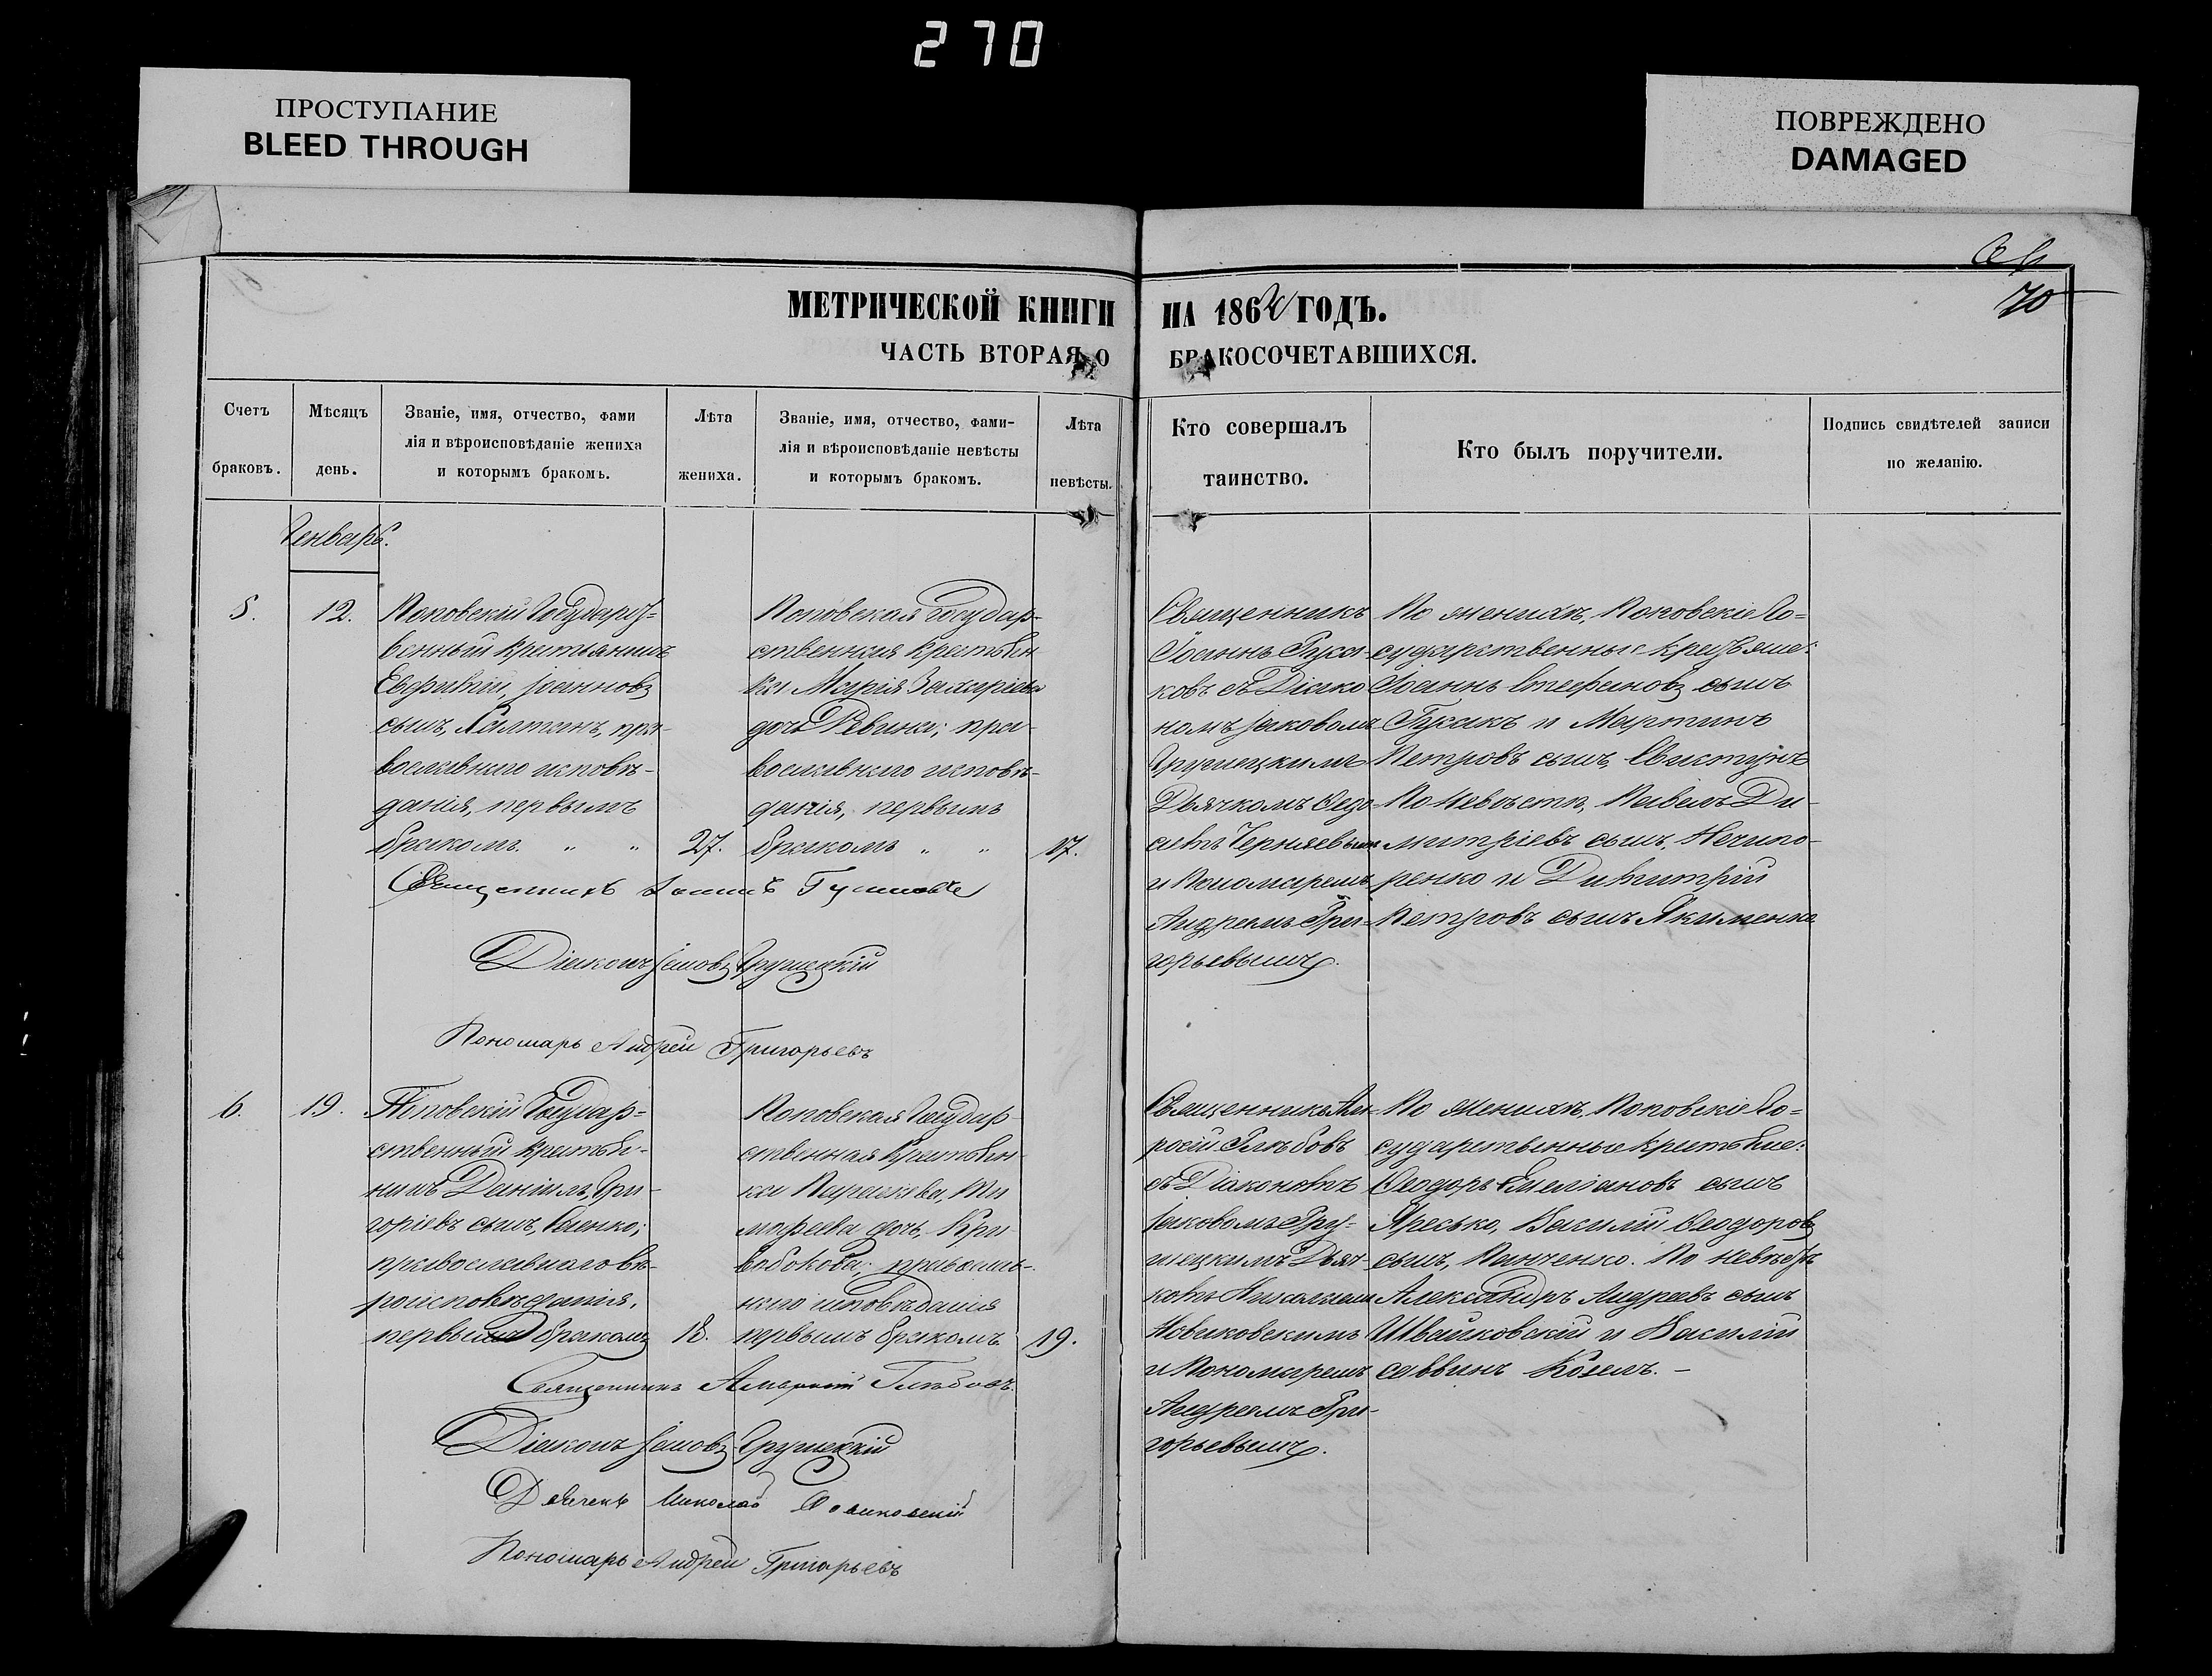 270
ПРОСТУПАНИЕ
BLEED THROUGH
ПОВРЕЖДЕНО
DAMAGED
70
МЕТРИЧЕСКОЙ КНИГИ НА 1862 ГОДЪ.
ЧАСТЬ ВТОРАЯ, О БРАКОСОЧЕТАВШИХСЯ.
Счетъ браковъ.
Мѣсяцъ день.
Званіе, имя, отчество, фами
лія и вѣроисповѣданіе жениха
и которымъ бракомъ.
Лѣта жениха.
Званіе, имя, отчество, фами-
лія и вѣроисповѣданіе невѣсты
и которымъ бракомъ.
Лѣта невѣсты.
Кто совершалъ
таинство.
Кто былъ поручители.
Подпись свидѣтелей записи
по желанію.
Генварь.
5.
12.
Поповскій Государст-
венный крестьянинъ
Іоанновъ
сынъ, пра-
вославнаго исповѣ-
данія, первымъ
бракомъ. " "
27.
Поповская Государ-
ственная крестьян
ка Марія Захаріева
дочь Ревина; пра-
вославнаго исповѣ-
данія, первымъ
бракомъ " "
17.
Священникъ
Іоаннъ Гуса-
ковъ съ Діако
номъ Іаковомъ
Грушецкимъ
Дьячкомъ Ѳедо-
Черняевымъ
и Пономаремъ
Андреемъ Гри-
горьевымъ.
По женихѣ, Поповскіе Го-
сударственные крестьяне:
Іоаннъ Стефановъ сынъ
Гусакъ и Мартинъ
Петровъ сынъ, Свистунъ
По невѣстѣ, Павелъ Ди-
митріевъ сынъ, Нечипо-
ренко и Димитрій
Петровъ сынъ Якименко
Священникъ Іоаннъ Гусаковъ
Діаконъ Іаковъ Грушецкій
Пономарь Андрей Григорьевъ
6.
19.
Поповскій Государ-
ственный крестья-
нинъ Даніилъ, Гри-
горіевъ сынъ,
православнаго вѣ-
роисповѣданія,
первымъ бракомъ
18.
Поповская Государ-
ственная крестьян-
ка Параскева, Ти
моѳеева дочь, Кри
вобокова; православ-
наго исповѣданія
первымъ бракомъ
19.
Священникъ Ам-
росій Глѣбовъ
съ Діакономъ
Іаковомъ Гру-
шецкимъ Дьяч-
комъ Николаемъ
Новиковскимъ
и Пономаремъ
Андреемъ Гри-
горьевымъ.
По женихѣ, Поповскіе Го-
сударственные крестьяне:
Ѳеодоръ Емеліановъ сынъ
Яресько, Василій Ѳеодоровъ
сынъ, Панченко. По невѣстѣ
Александръ Андреевъ сынъ
Швайковскій и Василій
Саввинъ Козелъ. -
Священникъ Глѣбовъ.
Діаконъ Іаковъ Грушецкій
Дьячекъ Николай Новиковскій
Пономарь Андрей Григорьевъ